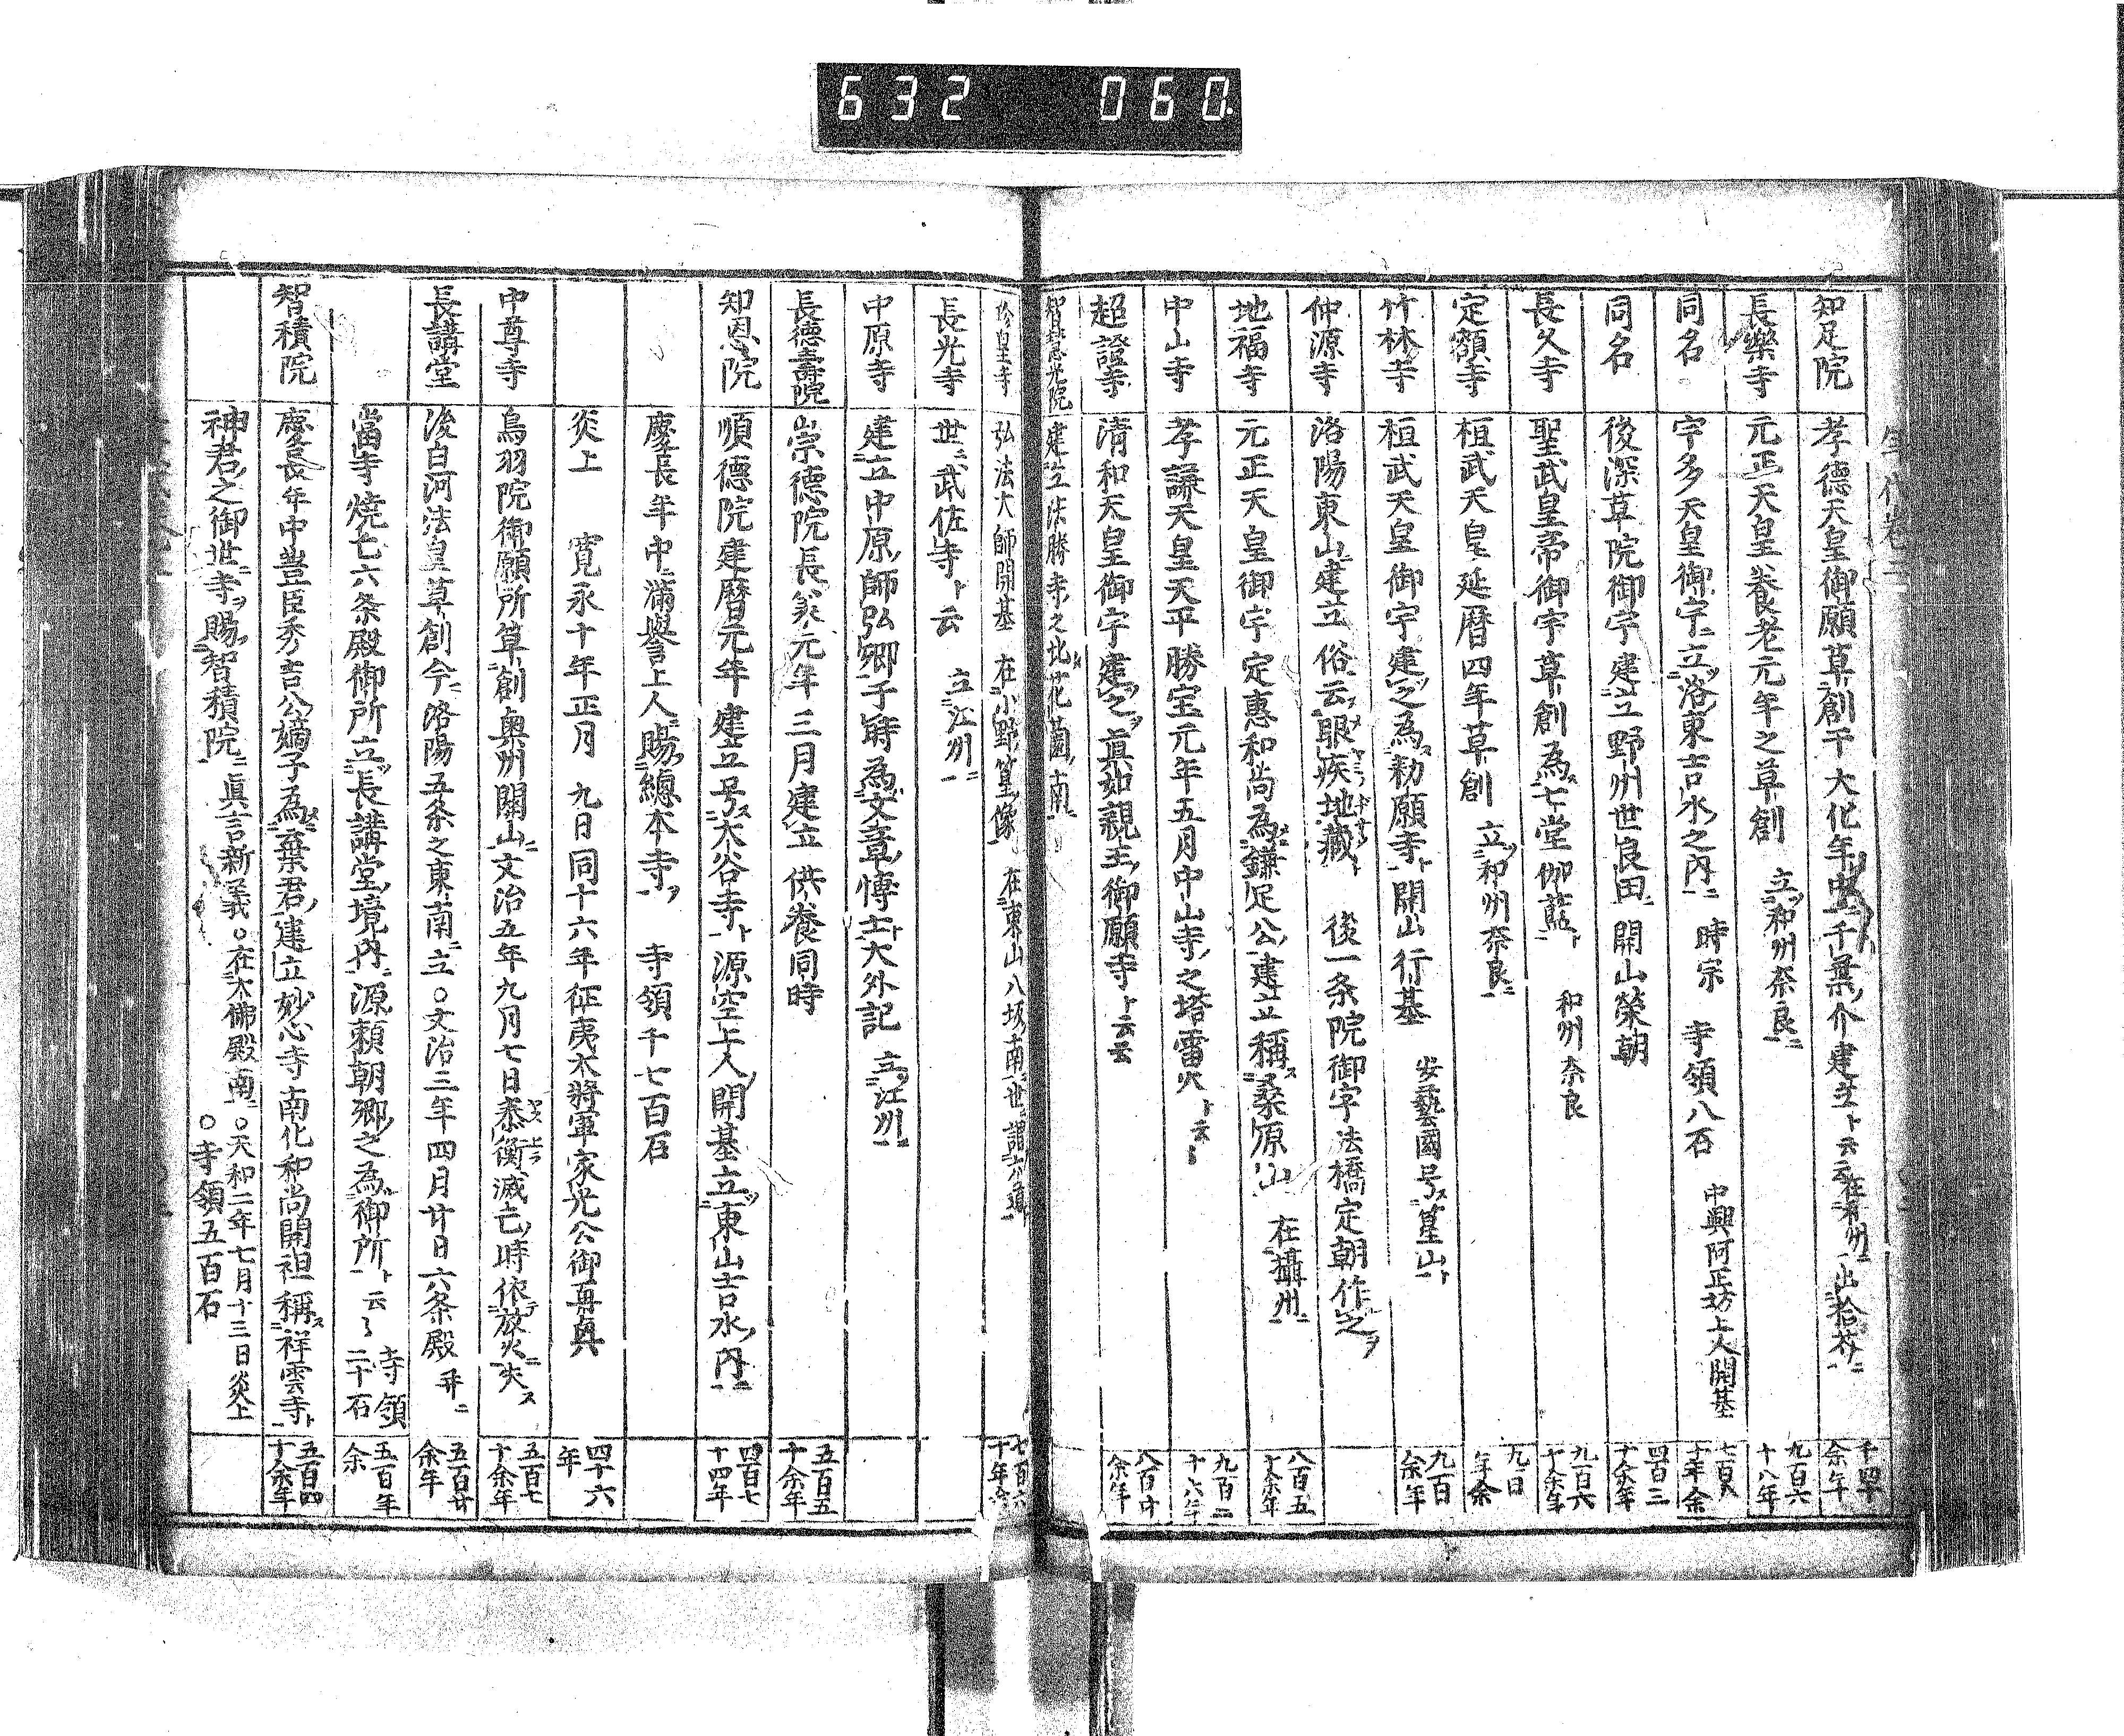 632 060
知足院 孝德天皇御願草創干大化年中 建立ト云云 在 州 拾芥ニ 千四十余年
長樂寺 元正天皇養老元年之草創 立和州奈良ニ 九百六十八年
同名 宇多天皇御宇ニ立洛東吉水之内ニ 時宗 寺領八石 中興阿正坊上人開基 七百八十年余
同名 後深草院御宇建立野州世良田ニ 開山榮朝 四百三十余年
長久寺 聖武皇帝御宇草創為七堂伽藍ト 和州奈良 九百六十余年
定額寺 桓武天皇延暦四年草創 立和州奈良ニ 九百年余
竹林寺 桓武天皇御宇建之為勅願寺ト 開山行基 安藝國号篁山ト 九百余年
仲源寺 洛陽東山ニ建立 俗云眼疾地藏ト 後一条院御宇法橋定朝作之
地福寺 元正天皇御宇 定惠和尚為鎌足公建立 稱桑原山 在攝州ニ 八百五十余年
中山寺 孝謙天皇天平勝宝元年五月中山寺之塔雷火ト云々 九百二十六年
超證寺 清和天皇御宇建之眞如親王御願寺ト云云 八百廿余年
智慧光院 建立法勝寺之北花薗南ニ
珍皇寺 弘法大師開基 在小野篁像 在東山八坂南ニ世ニ謂六道 七百六十年余
長光寺 世ニ武佐寺ト云 立江州ニ
中原寺 建立中原師弘卿子時為文章博士大外記 立江州ニ
長德壽院 崇德院長承元年三月建立 供養同時 五百五十余年
知恩院 順德院建暦元年建立号大谷寺ト 源空上人開基立東山吉水内ニ 四百七十四年
慶長年中満譽上人賜總本寺 寺領千七百石
炎上 寛永十年正月九日同十六年征夷大將軍家光公御再興 四十六年
中尊寺 鳥羽院御願所草創奥州關山ニ 文治五年九月七日泰衡滅亡時依放火ニ失ス 五百七十余年
長講堂 後白河法皇草創今洛陽五条之東南ニ立〇文治三年四月廿日六条殿 并ニ 五百廿余年
當寺燒亡六条殿御所立長講堂境内源賴朝卿之為御所ト云々 寺領二十石 五百年余
智積院 慶長年中豊臣秀吉公嫡子為棄君建立妙心寺南化和尚開祖 稱祥雲寺ト 五百四十余年
神君之御世ニ寺賜智積院ニ 眞言新義〇在大佛殿南ニ〇天和二年七月十三日炎上 〇寺領五百石